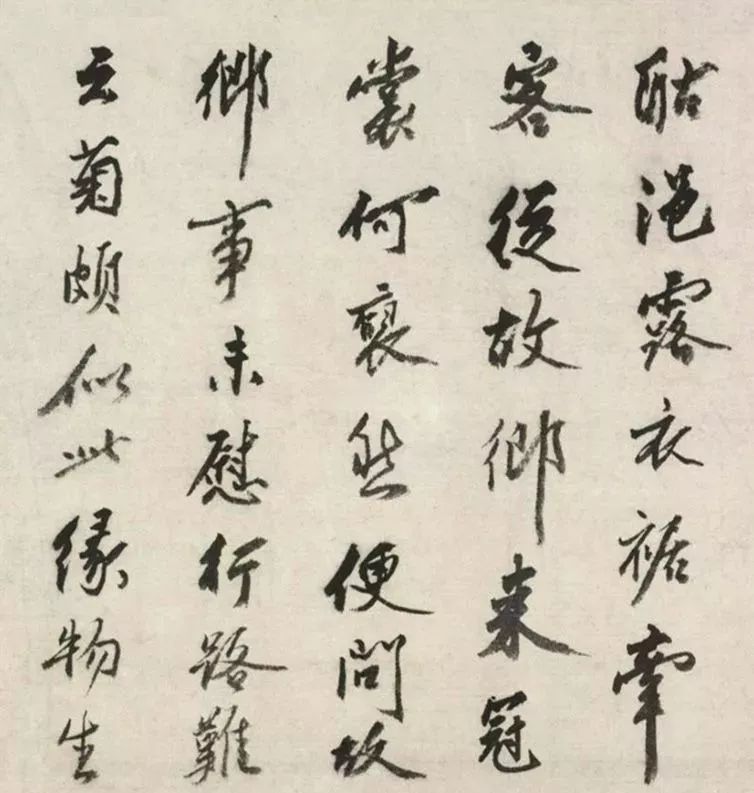 酤浥露衣裾牽
客從故鄉來冠
裳何褎然便問故
鄉事未慰行路難
云菊頗似此緣物生